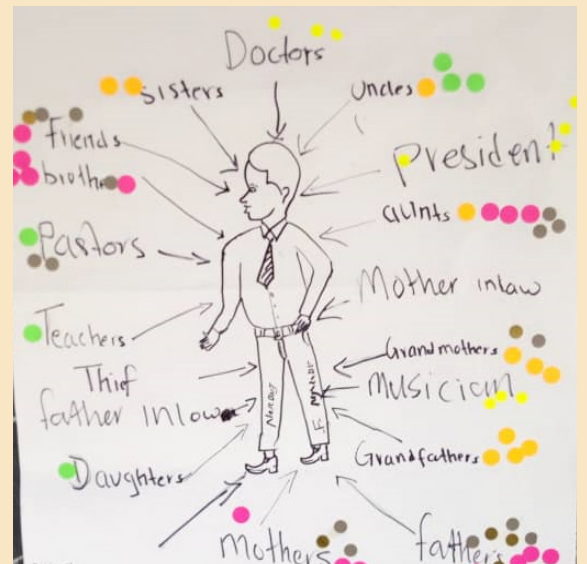 Doctors
sisters
Uncles
Friends
President
brother
aunts
Pastors
Mother inlaw
Teachers
Grandmothers
Thief
musician
father Inlow
Grandfathers
Daughters
Mothers
fathers